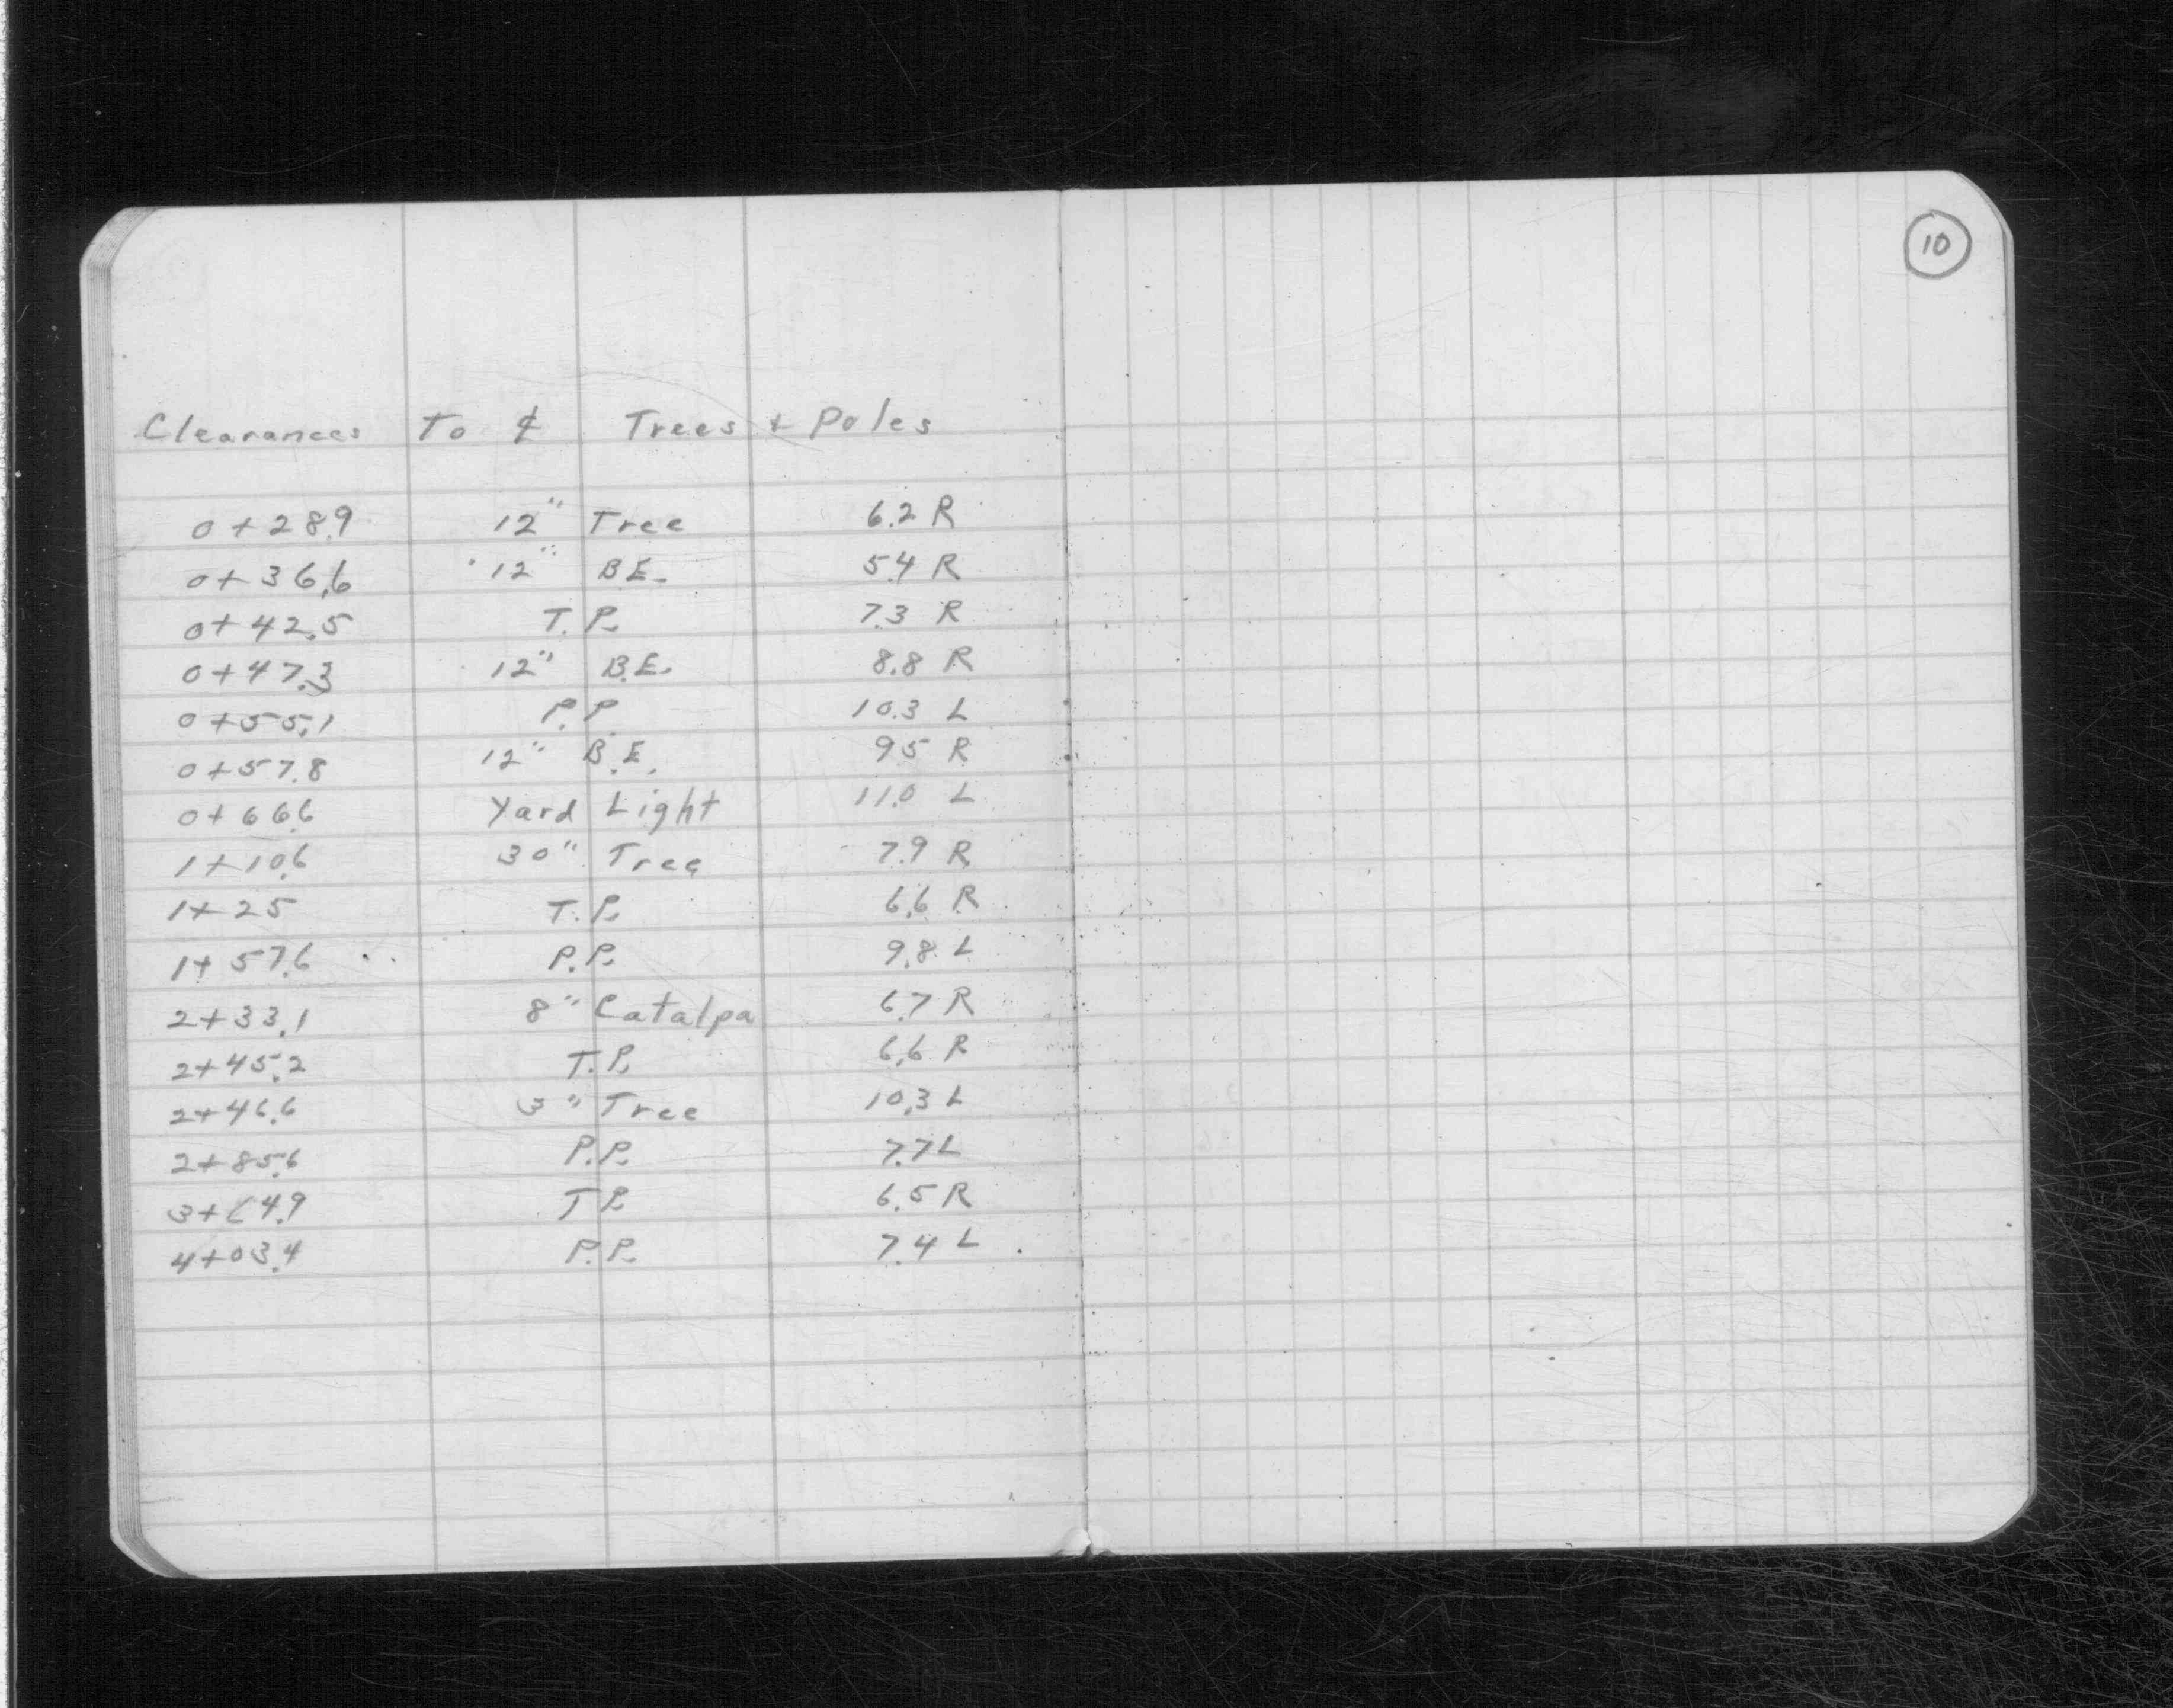 10
Clearances To ⅊ Trees + Poles
0+28.9 12" Tree 6.2 R
0+36.6 12" B.E. 5.4 R
0+42.5 T.P. 7.3 R
0+47.3 12" B.E. 8.8 R
0+55.1 P.P. 10.3 L
0+57.8 12" B.E. 9.5 R
0+66.6 Yard Light 11.0 L
1+10.6 30" Tree 7.9 R
1+25 T.P. 6.6 R
1+57.6 P.P. 9.8 L
2+33.1 8" Catalpa 6.7 R
2+45.2 T.P. 6.6 R
2+46.6 3" Tree 10.3 L
2+85.6 P.P. 7.7 L
3+64.9 T.P. 6.5 R
4+03.4 P.P. 7.4 L